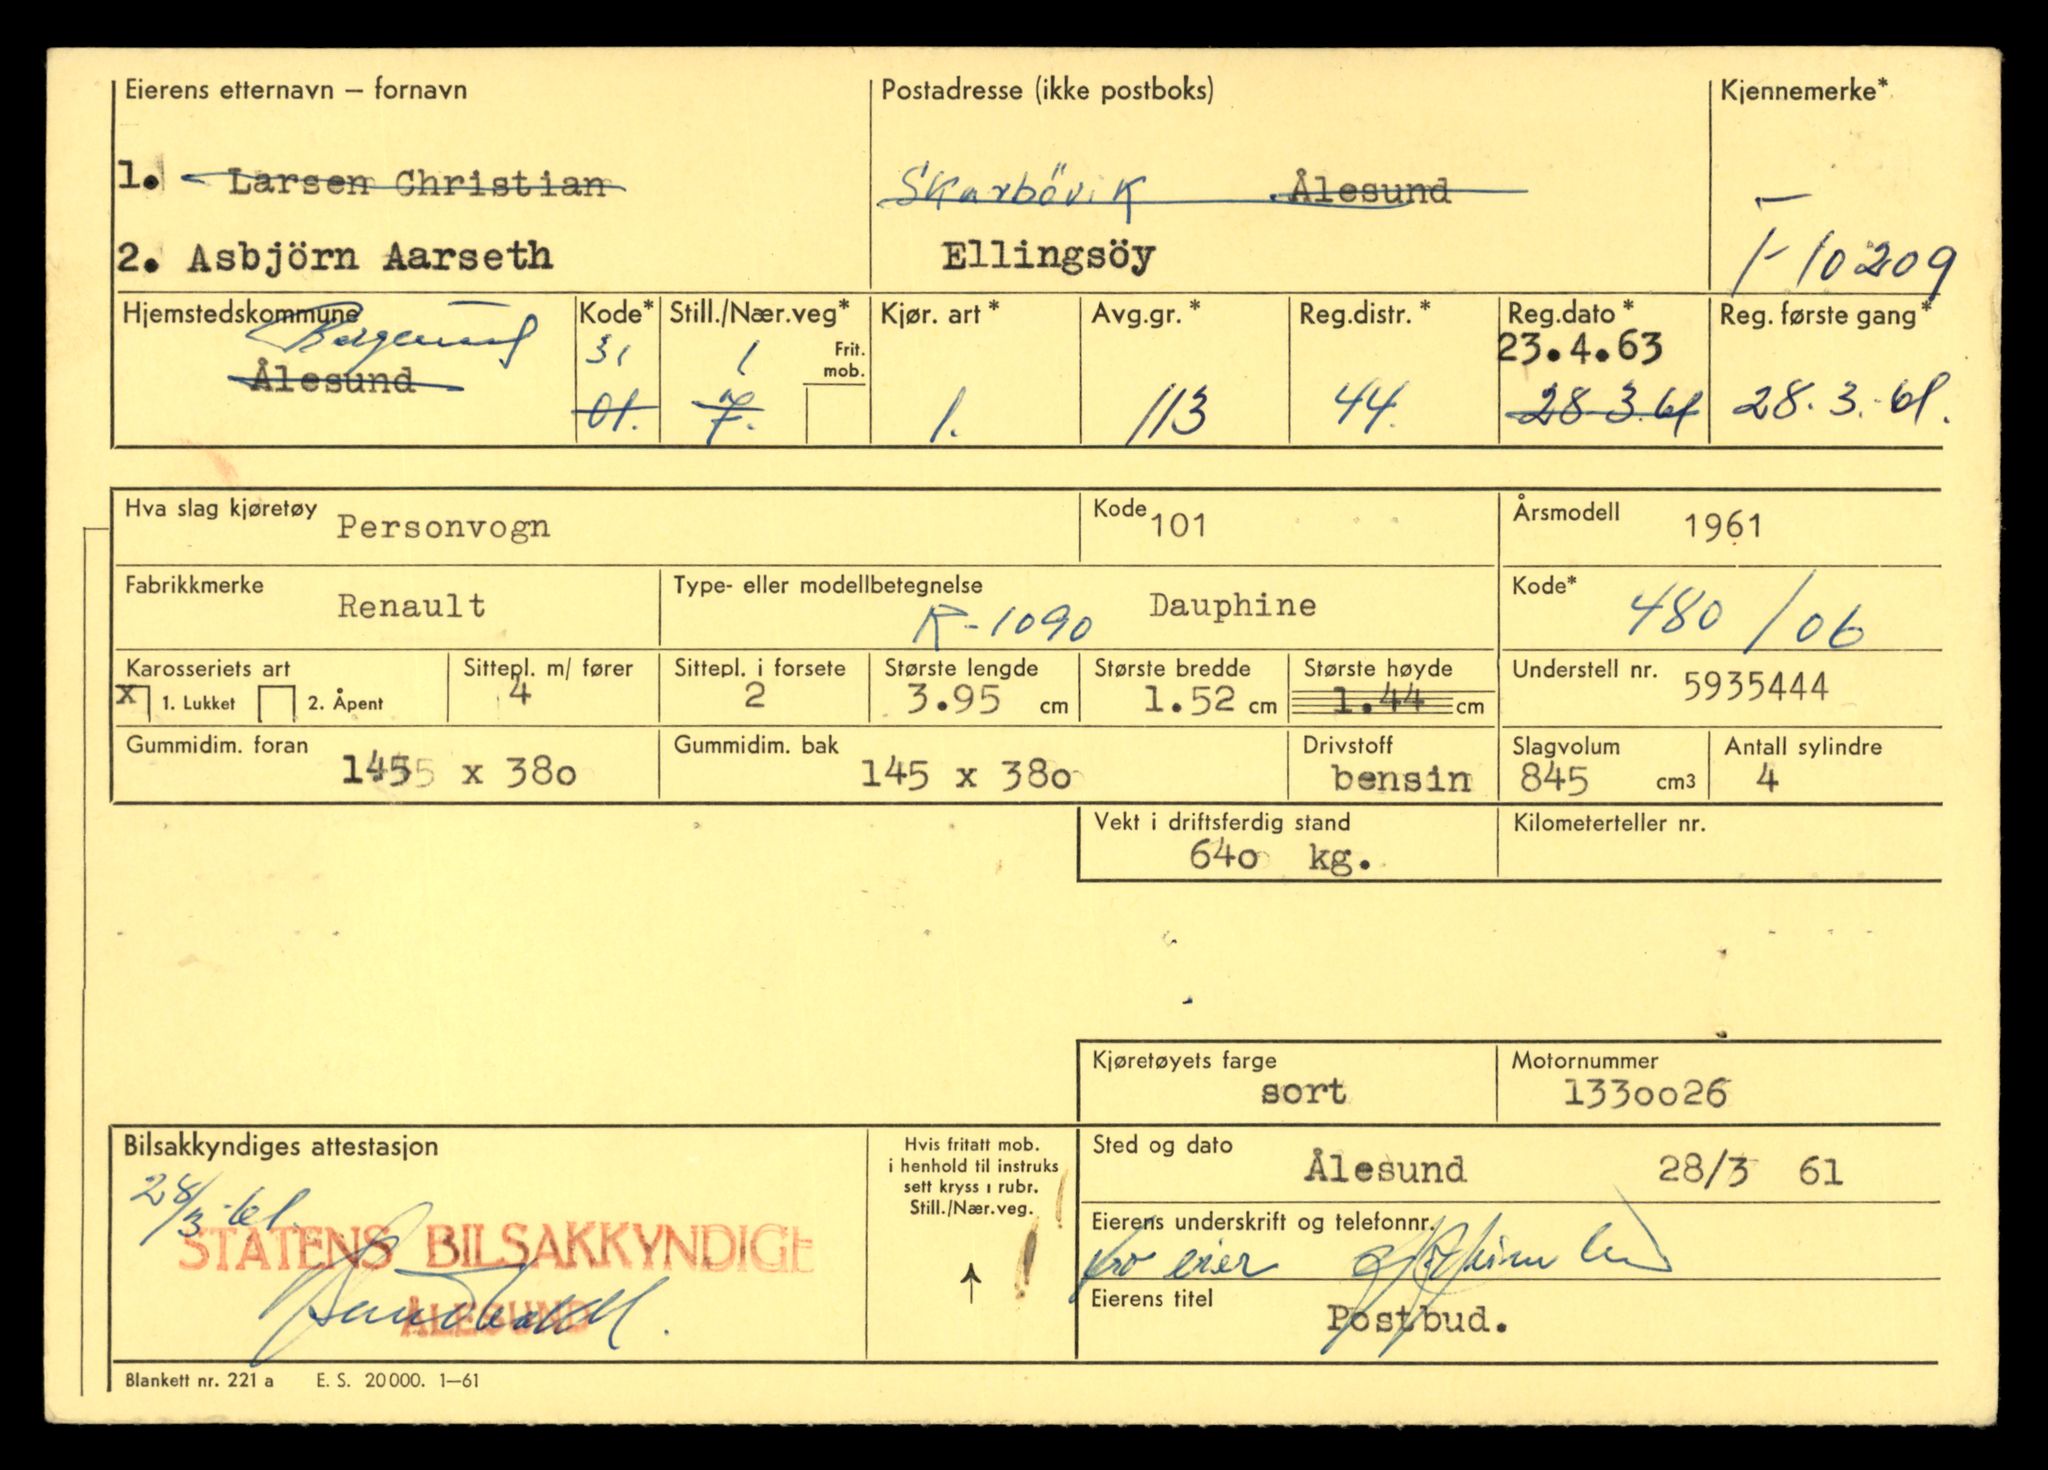 Eierens etternavn – fornavn Postadresse (ikke postboks) Kjennemerke*
1. Larsen Christian Skarbövik Ålesund
2. Asbjörn Aarseth Ellingsöy T-10209
Hjemstedskommune Kode* Still./Nær.veg* Kjør. art* Avg.gr.* Reg.distr.* Reg.dato* Reg. første gang*
Borgund 31 1 Frit. mob. 23.4.63
Ålesund 01. 7. 1. 113 44. 28-3.61 28.3.-61.
Hva slag kjøretøy Personvogn Kode 101 Årsmodell 1961
Fabrikkmerke Renault Type- eller modellbetegnelse R-1090 Dauphine Kode* 480/06
Karosseriets art Sittepl. m/ fører Sittepl. i forsete Største lengde Største bredde Største høyde Understell nr. 5935444
x 1. Lukket 2. Åpent 4 2 3.95 cm 1.52 cm 1.44 cm
Gummidim. foran Gummidim. bak Drivstoff Slagvolum Antall sylindre
1455 x 380 145 x 380 bensin 845 cm3 4
Vekt i driftsferdig stand Kilometerteller nr.
640 kg.
Kjøretøyets farge Motornummer
sort 1330026
Bilsakkyndiges attestasjon
28/3-61.
STATENS BILSAKKYNDIGE
ÅLESUND
Hvis fritatt mob.
i henhold til instruks
sett kryss i rubr.
Still./Nær.veg.
Sted og dato
Ålesund 28/3 61
Eierens underskrift og telefonnr.
pro eier
Eierens titel
Postbud.
Blankett nr. 221 a E. S. 20000. 1–61